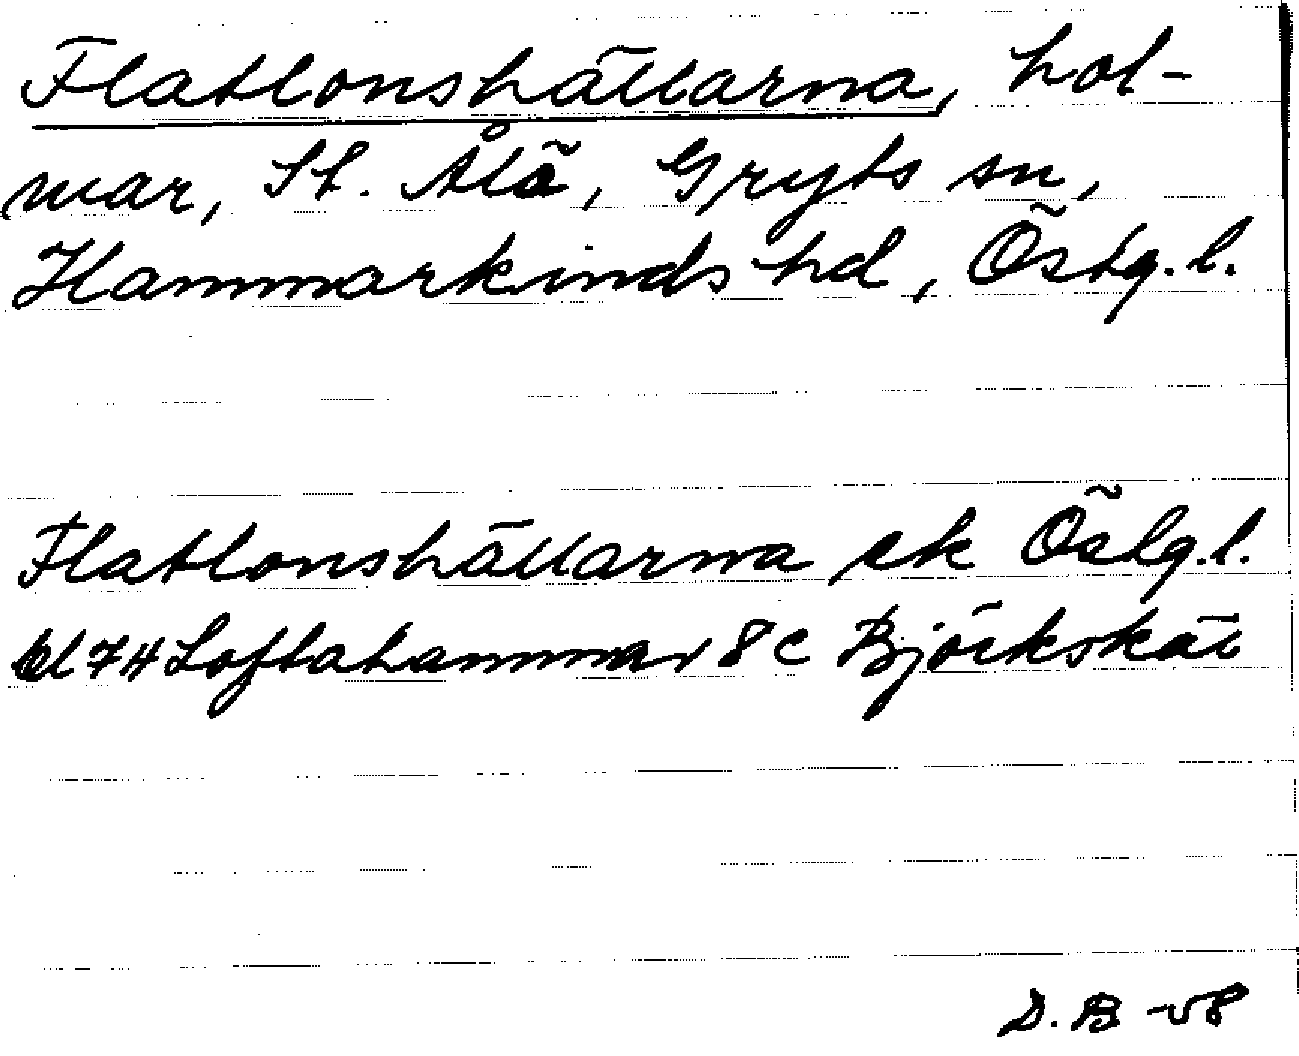 Flatlonshällarna, hol-
mar, St. Ålö, Gryts sn,
Hammarkinds hd, Östg.l.
Flatlonshällarna ek Östg.l.
bl 7H Loftahammar 8c Björkskär
D.B -58